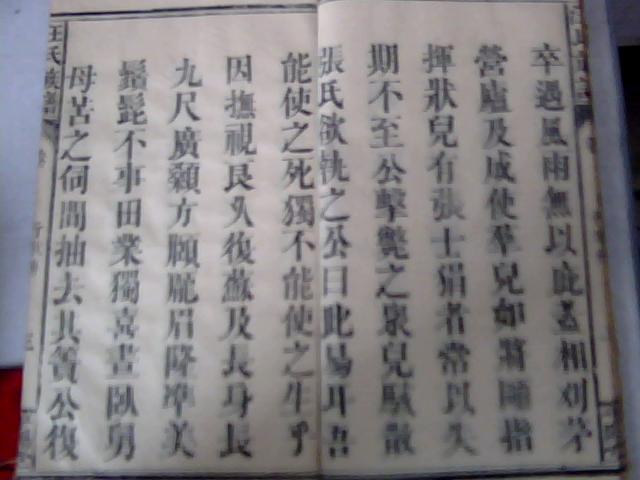 卒遇風雨無以庇蓋相刈茅
營廬及成使羣兒如將帥指
揮狀兒有張士狷者常以失
期不至公擊斃之衆兒駭散
張氏欲執之公曰此易耳吾
能使之死獨不能使之生乎
因撫視良久復蘇及長身長
九尺廣顙方頤龐眉隆準美
鬚髭不事田業獨喜晝臥舅
母苦之伺間抽去其簀公復
汪氏族譜
三